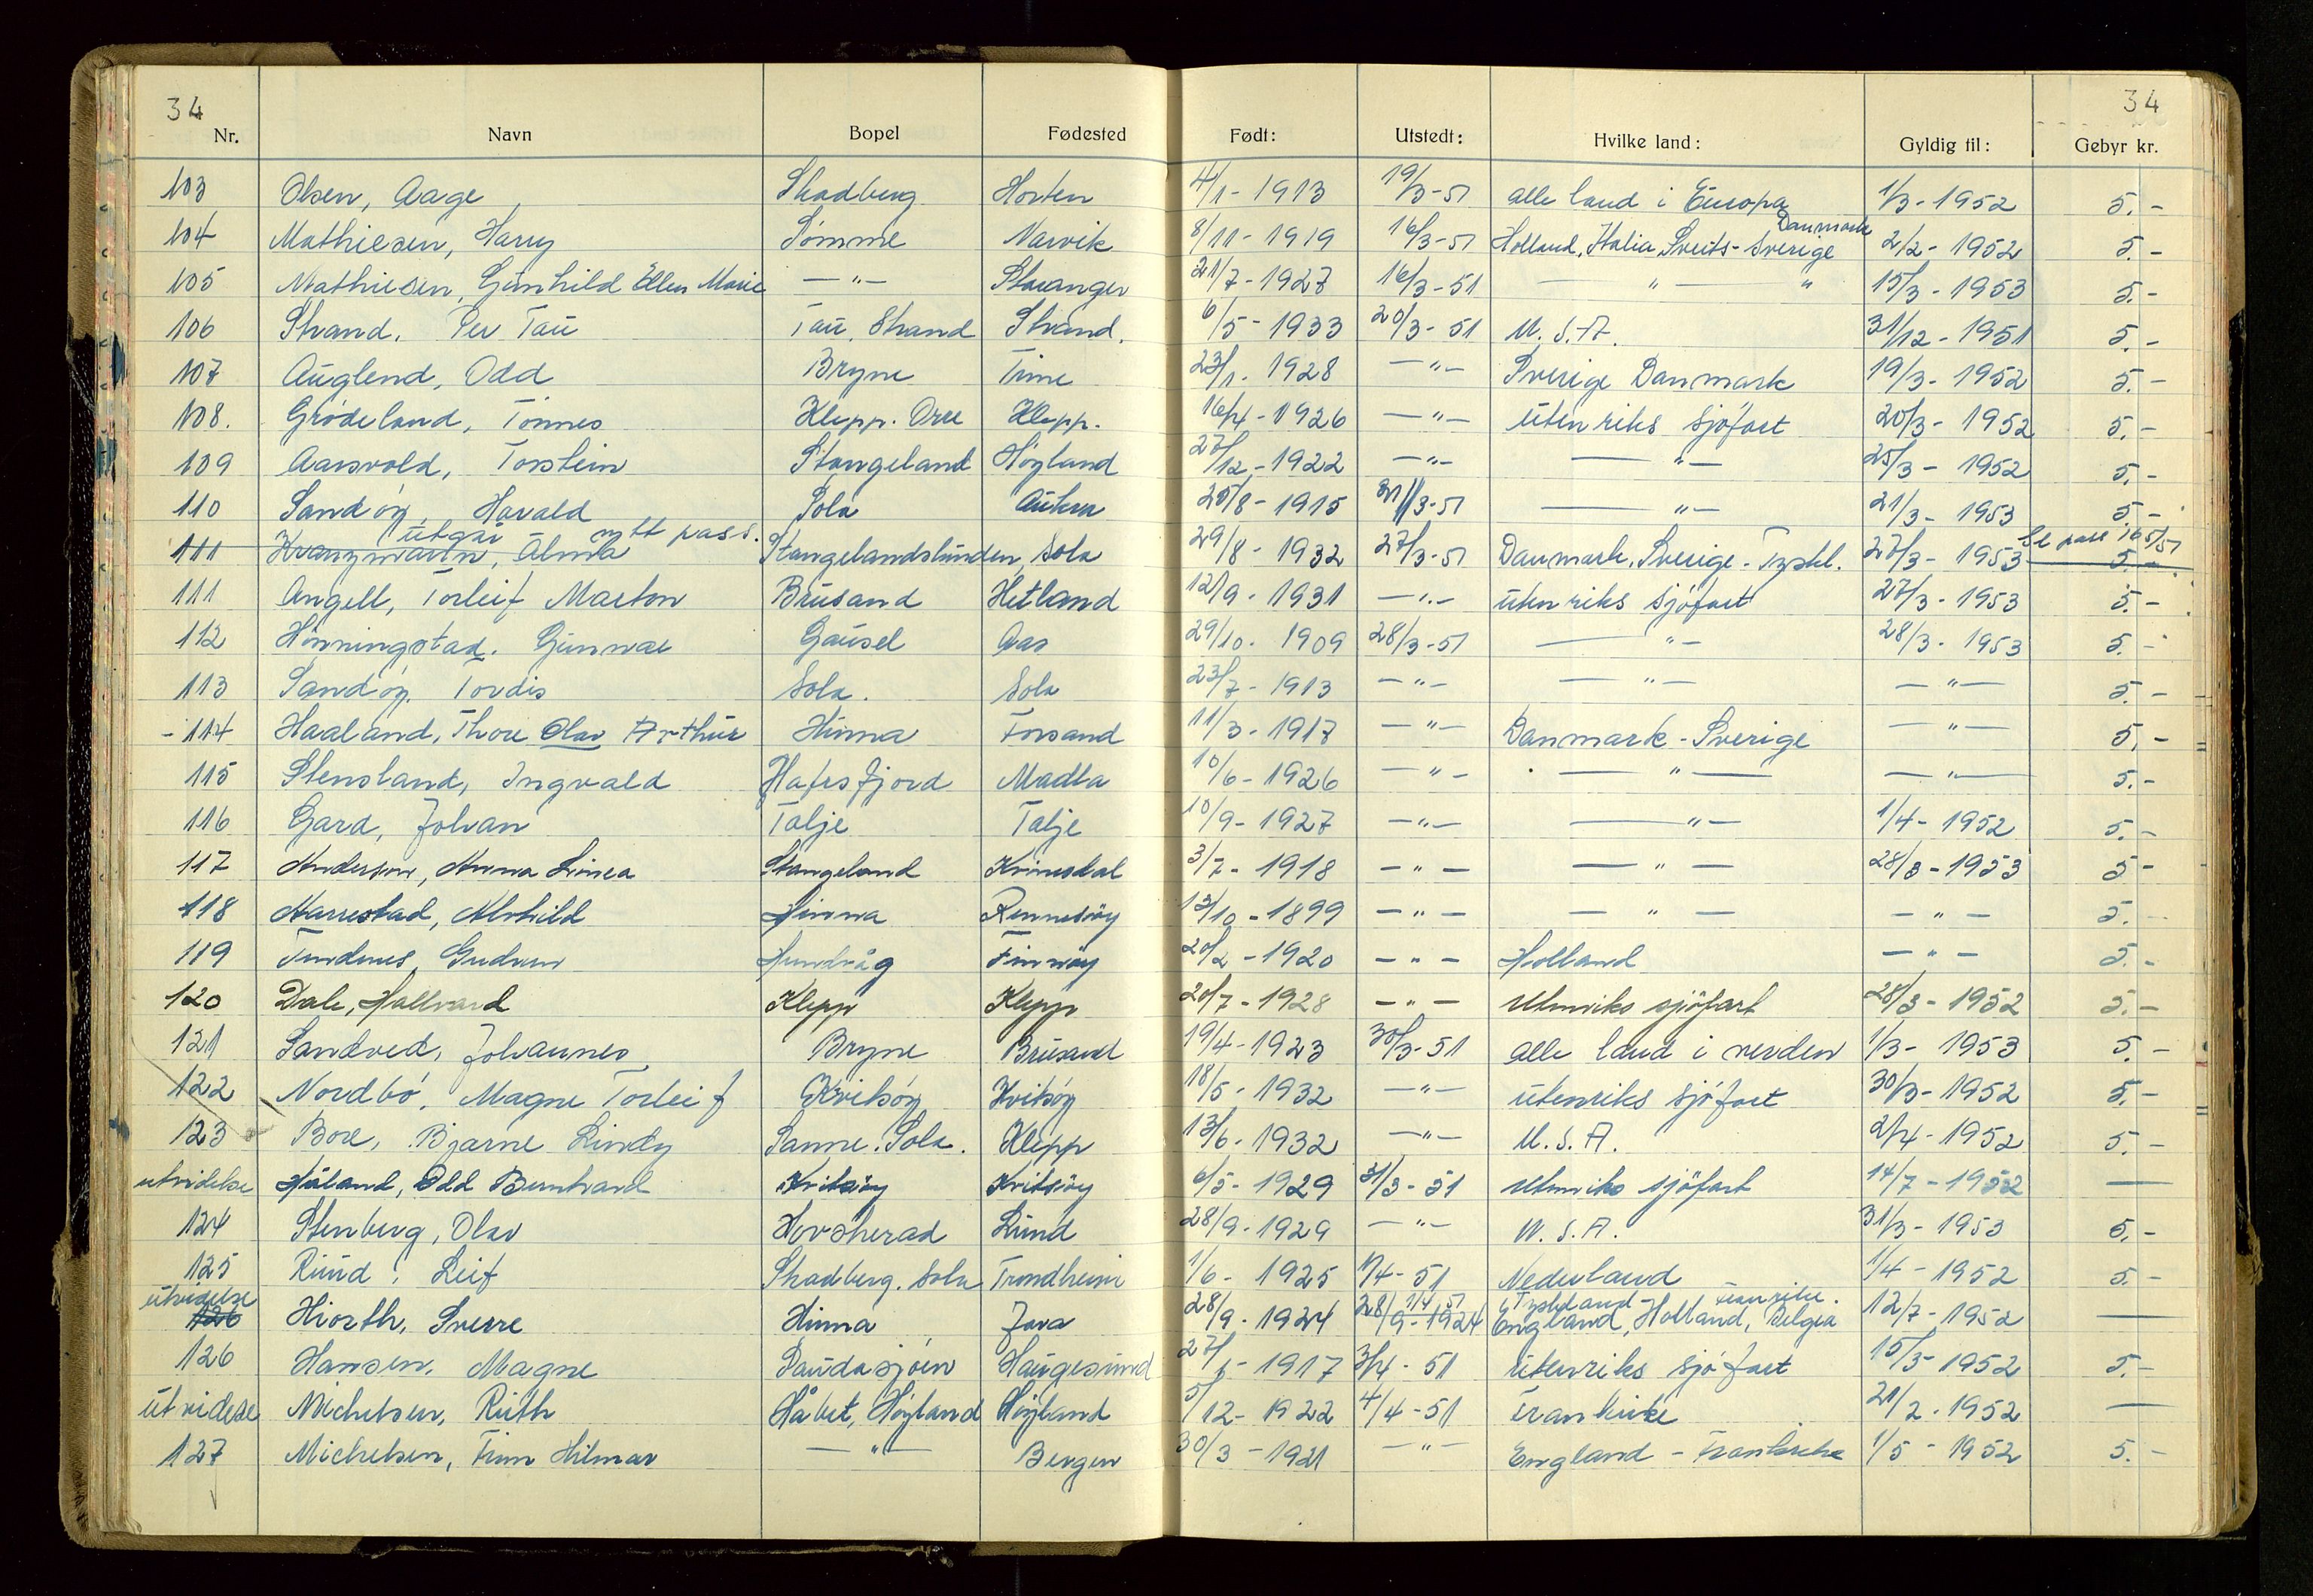 34 34
Nr. Navn Bopel Fødested Født: Utstedt: Hvilke land: Gyldig til: Gebyr kr.
103 Olsen, Aage Skadberg Horten 4/1 - 1913 19/3-51 alle land i Europa 1/3 - 1952 5.-
Danmark
104 Mathiesen, Harry Sømme Narvik 8/11 - 1919 16/3-51 Holland, Italia, Sveits - Sverige 2/2 - 1952 5.-
105 Mathiesen, Gunhild Ellen Marie — " — Stavanger 21/7 - 1927 16/3-51 — " — " 15/3 - 1953 5.-
106 Strand, Per Tau Tau, Strand Strand. 6/5 - 1933 20/3-51 U.S.A. 31/12 - 1951 5.-
107 Auglend, Odd Bryne Time 23/1. 1928 — " — Sverige Danmark 19/3 - 1952 5.-
108. Grödeland, Tönnes Klepp. Orre Klepp. 16/4 - 1926 — " — utenriks sjöfart 20/3 - 1952 5.-
109 Aarsvold, Torstein Stangeland Höyland 27/12 - 1922 — " — — " — 25/3 - 1952 5.-
110 Sandöy, Harald Sola Aukra 20/8 - 1915 31/3-51 — " — 21/3 - 1953 5.-
utgår nytt pass. Se pass 165/51
111 Alma Stangelandslunden, Sola 29/8 - 1932 27/3-51 Danmark, Sverige - Tyskl. 27/3 - 1953 5.-
111 Angell, Torleif Marton Brusand Hetland 12/9 - 1931 — " — utenriks sjöfart 27/3 - 1953 5.-
112 Hönningstad. Gunnar Gausel Aas 29/10. 1909 28/3-51 — " — 28/3 - 1953 5.-
113 Sandöy, Tordis Sola. Sola 23/7 - 1913 — " — — " — — " — 5.-
- 114 Haaland, Thore Olav Arthur Hinna Forsand 11/3 - 1917 — " — Danmark - Sverige — " — 5.-
115 Stensland, Ingvald Hafrsfjord Madla 10/6 - 1926 — " — — " — — " — 5.-
116 Gard, Johan Talje Talje 10/9 - 1927 — " — — " — 1/4 - 1952 5.-
117 Anderson, Anna Linea Stangeland Kvinesdal 3/7 - 1918 — " — — " — 28/3 - 1953 5-
118 Harrestad, Alvhild Hinna Rennesöy 13/10 - 1899 — " — — " — — " — 5.-
119 Tendenes, Gudrun Hundvåg Finnöy 20/2 - 1920 — " — Holland — " — 5.-
120 Dale, Hallvard Klepp Klepp 20/7 - 1928 — " — Utenriks sjöfart 28/3 - 1952 5.-
121 Sandved, Johannes Bryne Brusand 19/4 - 1923 30/3-51 alle land i verden 1/3 - 1953 5.-
122 Nordbö, Magne Torleif Kvitsöy Kvitsöy 18/5 - 1932 — " — utenriks sjöfart 30/3 - 1952 5.-
123 Bore, Bjarne Lindy Sanne. Sola. Klepp 13/6 - 1932 — " — U.S.A. 2/4 - 1952 5.-
utvidelse Håland, Odd Berntvard Kvitsöy Kvitsöy 6/5 - 1929 31/3-51 Utenriks sjöfart 14/7 - 1952 —
124 Stenberg, Olav Hovsherad Lund 28/9 - 1929 — " — U.S.A. 31/3 - 1953 5.-
125 Rund, Leif Skadberg. Sola Trondheim 1/6 - 1925 1/4-51 Nederland 1/4 - 1952 5.-
utvidelse 1/4 51 Tyskland - Frankrike.
126 Hiorth, Sverre Hinna Java 28/9 - 1924 28/9 - 1924 England, Holland, Belgia 12/7 - 1952 —
126 Hansen, Magne Saudasjöen Haugesund 27/ - 1917 3/4-51 utenriks sjöfart 15/3 - 1952 5.-
utvidelse Michelsen, Ruth Håbet, Höyland Höyland 5/12 - 1922 4/4-51 Frankrike 21/2 - 1952 —
127 Michelsen, Finn Hilmar — " — Bergen 30/3 - 1921 — " — England - Frankrike 1/5 - 1952 5.-